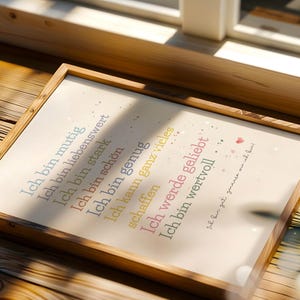 Ich bin mutig
Ich bin liebenswert
Ich bin stark
Ich bin schön
Ich bin genug
Ich kann ganz vieles
schaffen
Ich werde geliebt
Ich bin wertvoll